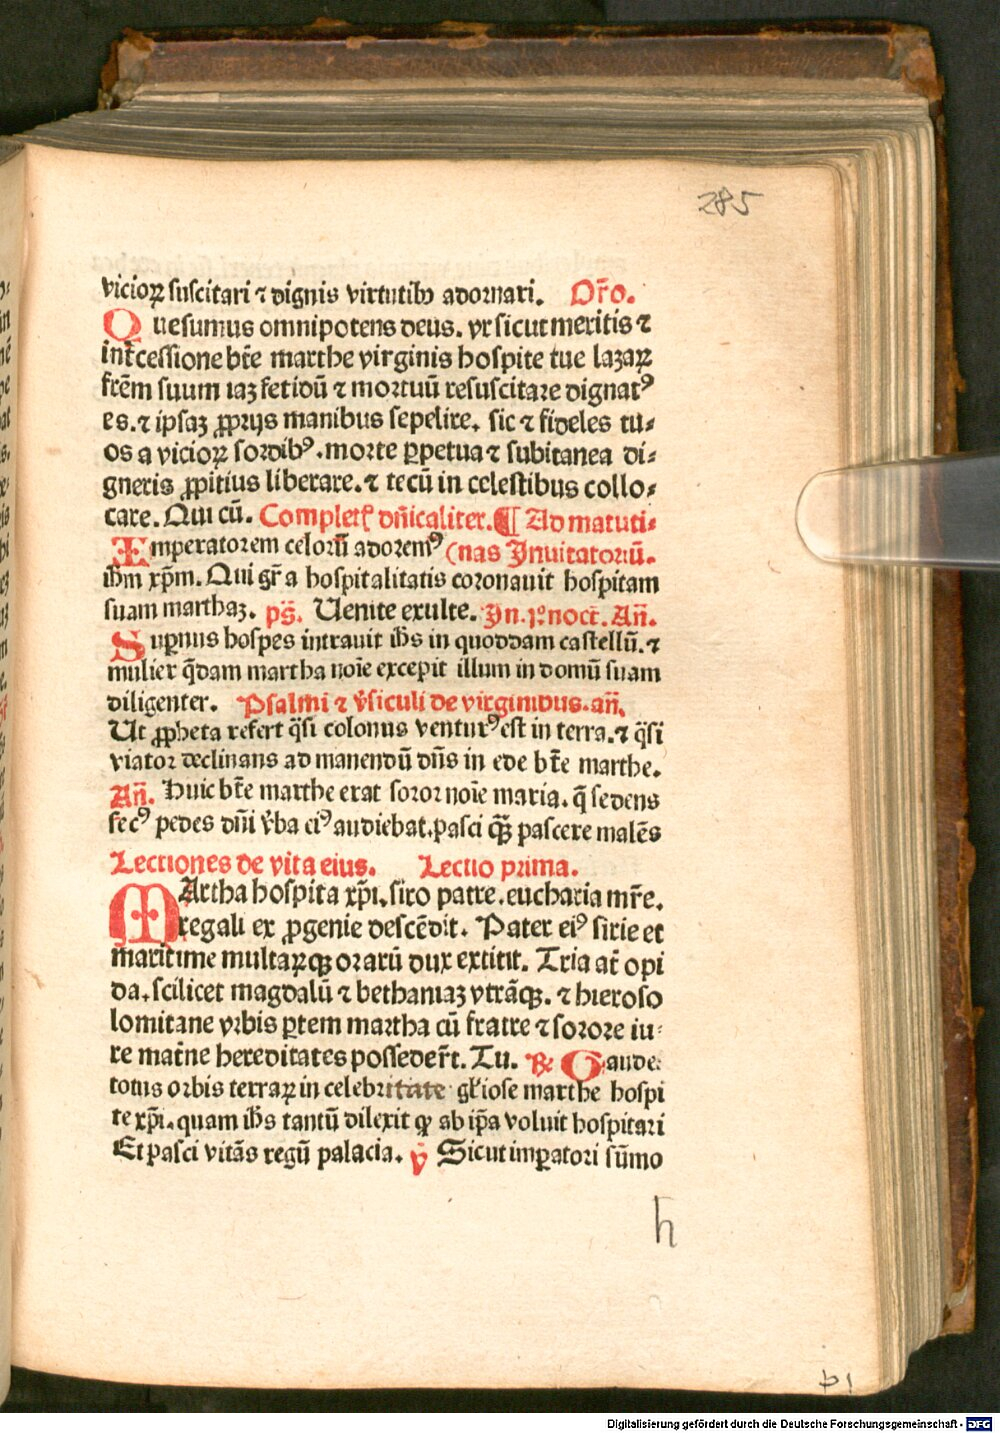 285
vicioꝝ suscitari ⁊ dignis virtutibꝫ adornari. Or̄o.
Quesumus omnipotens deus. vt sicut meritis ⁊
int̄cessione bt̄e marthe virginis hospite tue lazaꝝ
fr̄em suum iaꝫ fetidū ⁊ mortuū resuscitare dignatꝰ
es. ⁊ ipsaꝫ ꝓprijs manibus sepelire. sic ⁊ fideles tu⸗
os a vicioꝝ sordibꝰ. morte ꝑpetua ⁊ subitanea di⸗
gneris ꝓpitius liberare. ⁊ tecū in celestibus collo⸗
care. Qui cū. Complet̄ dn̄icaliter. ¶ Ad matuti⸗
Imperatorem celorū adoremꝰ (nas Inuitatoriū.
ih̄m xp̄m. Qui gr̄a hospitalitatis coronauit hospitam
suam marthaꝫ. ps̄. Uenite exulte. In .jº. noct̄. An̄.
Suꝑnus hospes intrauit ih̄s in quoddam castellū. ⁊
mulier q̄dam martha noīe excepit illum in domū suam
diligenter. Psalmi ⁊ v̄siculi de virginibus. an̄.
Ut ꝓpheta refert q̄si colonus venturꝰ est in terra. ⁊ q̄si
viator declinans ad manendū dn̄s in ede bt̄e marthe.
An̄. Huic bt̄e marthe erat soror noīe maria. q̄ sedens
secꝰ pedes dn̄i v̄ba eiꝰ audiebat. pasci q̄ꝫ pascere malēs
Lectiones de vita eius. Lectio prima.
MArtha hospita xp̄i. siro patre. eucharia mr̄e.
regali ex ꝓgenie descēdit. Pater eiꝰ sirie et
maritime multaꝝqꝫ orarū dux extitit. Tria at̄ opi
da. scilicet magdalū ⁊ bethaniaꝫ vtrāqꝫ. ⁊ hieroso
lomitane vrbis ꝑtem martha cū fratre ⁊ sorore iu⸗
re mat̄ne hereditates possedert̄. Tu. ℟ Gaude
totus orbis terraꝝ in celebritate gl̄iose marthe hospi
te xp̄i. quam ih̄s tantū dilexit ꝙ ab ip̄a voluit hospitari
Et pasci vitās regū palacia. ℣ Sicut imꝑatori sūmo
h
h 1
Digitalisierung gefördert durch die Deutsche Forschungsgemeinschaft - DFG